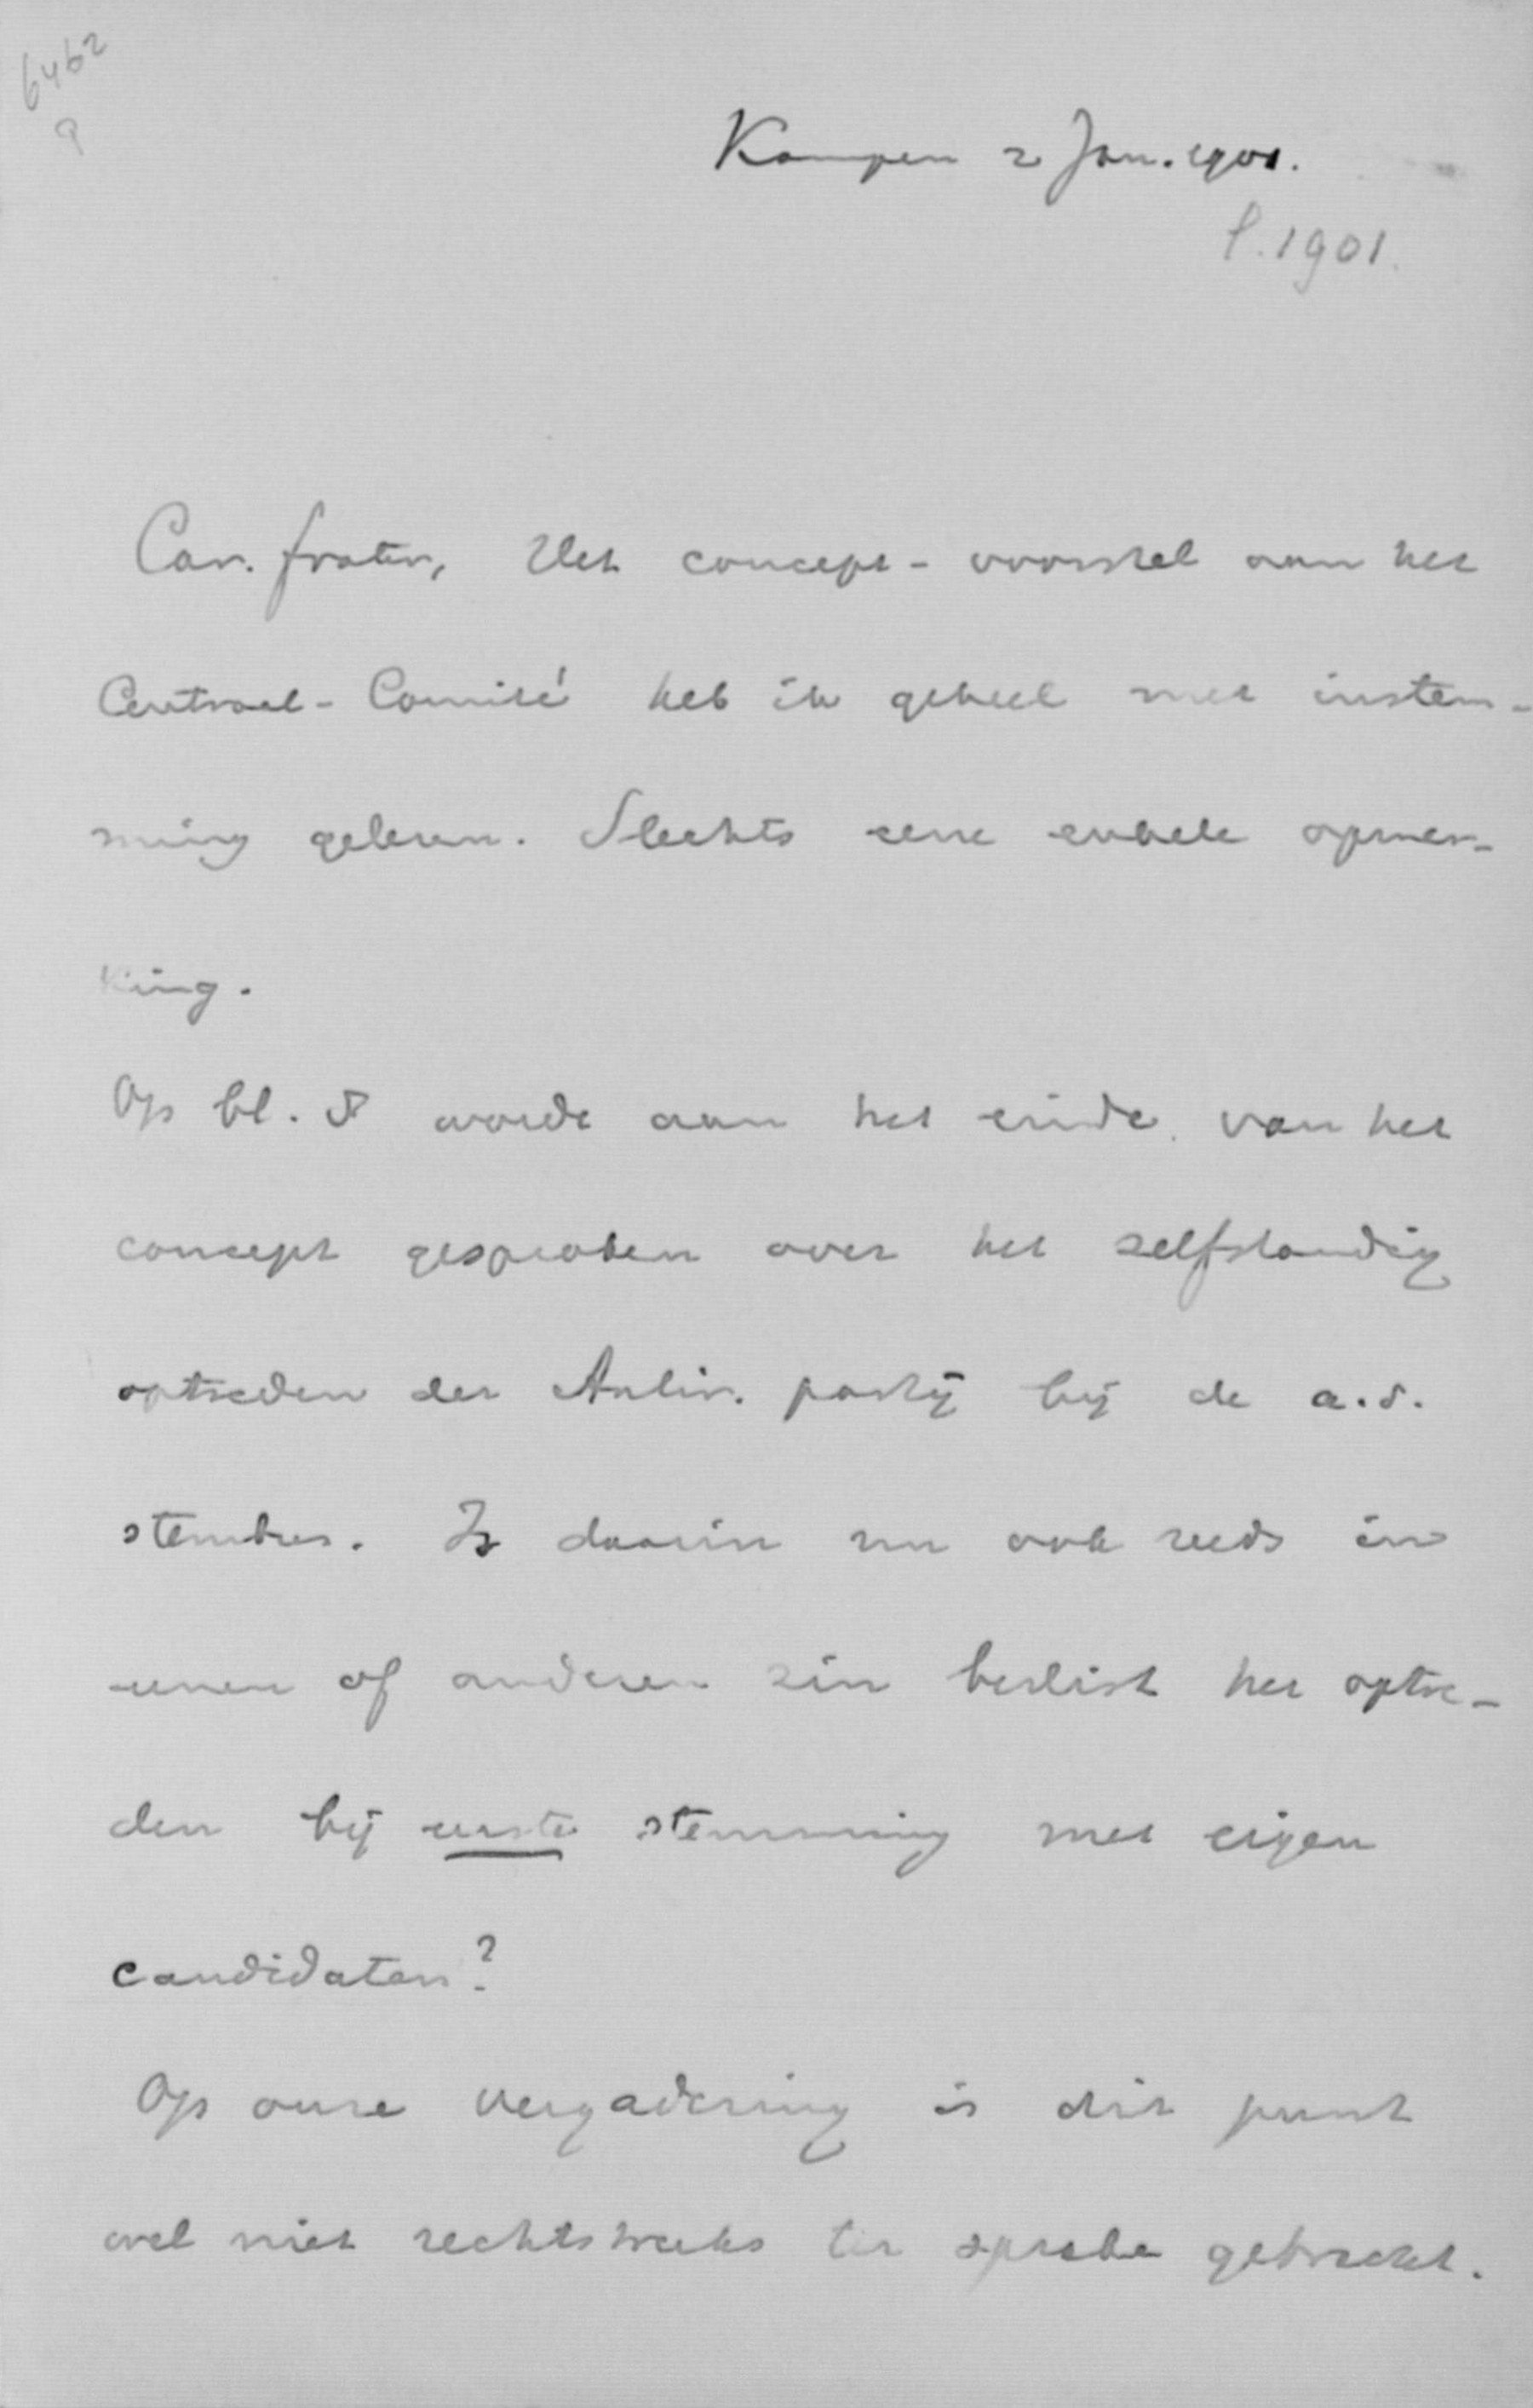 6462
9
Kampen 2 Jan. 1901.
1901.
Car. frater, Het concept-voorstel aan het
Centraal-Comité heb ik geheel met instem-
ming gelezen. Slechts eene enkele opmer-
king.
Op bl. 8 wordt aan het einde van het
concept gesproken over het zelfstandig
optreden der Antir. partij bij de a.s.
stembus. Is daarin nu ook reeds in
eenen of anderen zin beslist het optre-
den bij eerste stemming met eigen
candidaten?
Op onze vergadering is dit punt
wel niet rechtstreeks ter sprake gebracht.